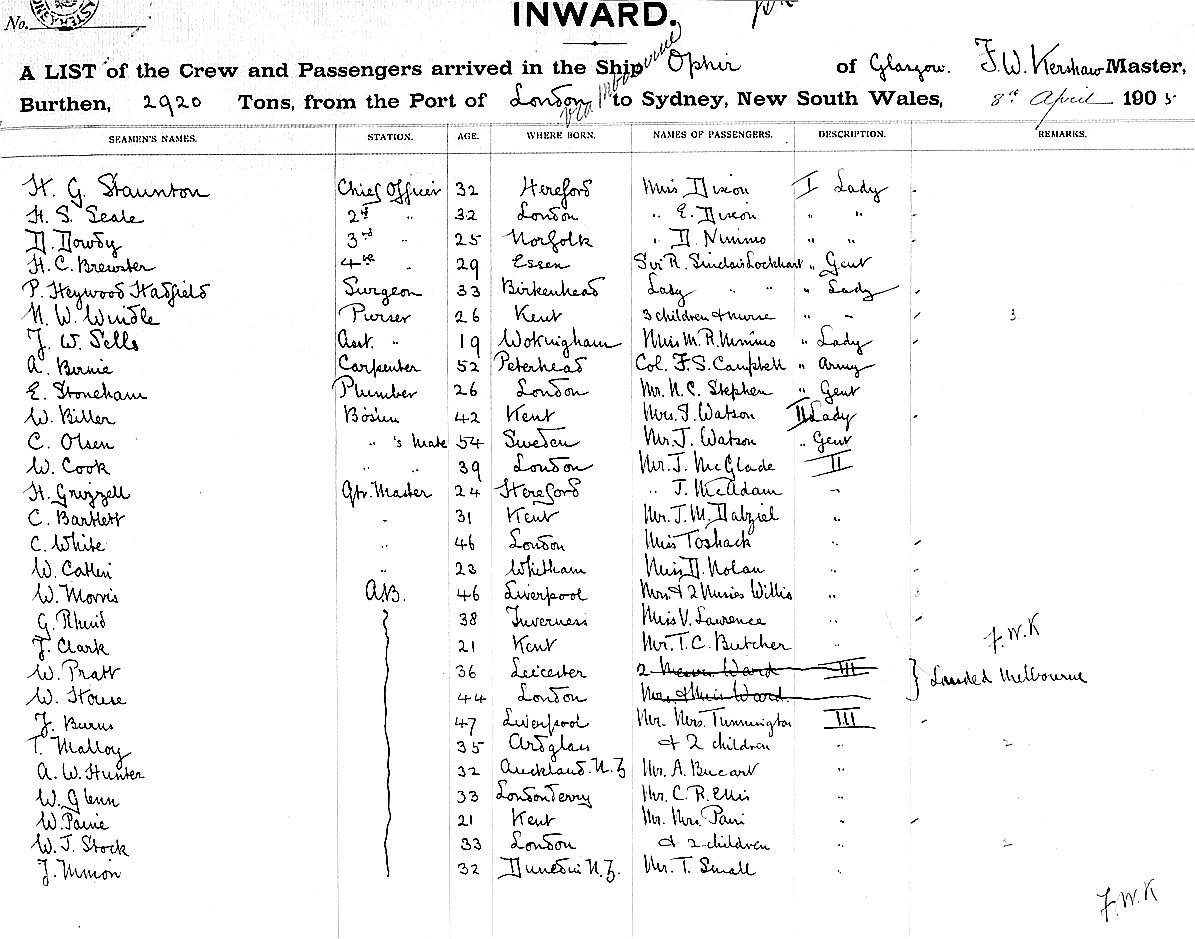 No.
INWARD.
A LIST of the Crew and Passengers arrived in the Ship Ophir of Glasgow. F.W. Kershaw Master,
Burthen, 2920 Tons, from the Port of London via Melbourne to Sydney, New South Wales, 8th April 1905
SEAMEN'S NAMES. STATION. AGE. WHERE BORN. NAMES OF PASSENGERS. DESCRIPTION. REMARKS.
H. G. Staunton Chief Officer 32 Hereford Miss Dixon I Lady
H. S. Seale 2nd " 32 London " E. Dixon " "
D. Dowdy 3rd " 25 Norfolk " D. Nimmo " "
H. C. Brewster 4th " 29 Essex Sir R. Sinclair Lockhart " Gent
P. Heywood Hadfield Surgeon 33 Birkenhead Lady " " " Lady
N. W. Windle Purser 26 Kent 3 children & nurse " " 3
J. W. Sells Asst. " 19 Wokingham Miss M. R. Nimmo " Lady
A. Birnie Carpenter 52 Peterhead Col. F. S. Campbell " Army
E. Stoneham Plumber 26 London Mr. N. C. Stephen " Gent
W. Biller Bosun 42 Kent Mrs. J. Watson II Lady
C. Olsen " 's Mate 54 Sweden Mr. J. Watson " Gent
W. Cook " " 39 London Mr. J. McGlade II
H. Grizzell Qtr. Master 24 Hereford " J. McAdam "
C. Bartlett " 31 Kent Mr. J. M. Dalziel "
C. White " 46 London Miss Toshack "
W. " 23 Whitham Miss D. Nolan "
W. Morris A.B. 46 Liverpool Mrs & 2 Misses Willis "
G. 38 Inverness Miss V. Lawrence "
J. Clark 21 Kent Mr. T. C. Butcher " F.W.K
W. Pratt 36 Leicester 2 Ward III } Landed Melbourne
W. House 44 London Mrs & Miss Ward
J. Burns 47 Liverpool Mr. Mrs. Tunnington III
T. Malloy 35 Ardglass & 2 children " 2
A. W. Hunter 32 Auckland. N.Z Mr. A. "
W. Glenn 33 Londonderry Mr. C. R. Ellis "
W. Paine 21 Kent Mr. Mrs. "
W. J. Stock 33 London & 2 children " 2
J. 32 Dunedin N.Z. Mr. T. Small "
F.W.K